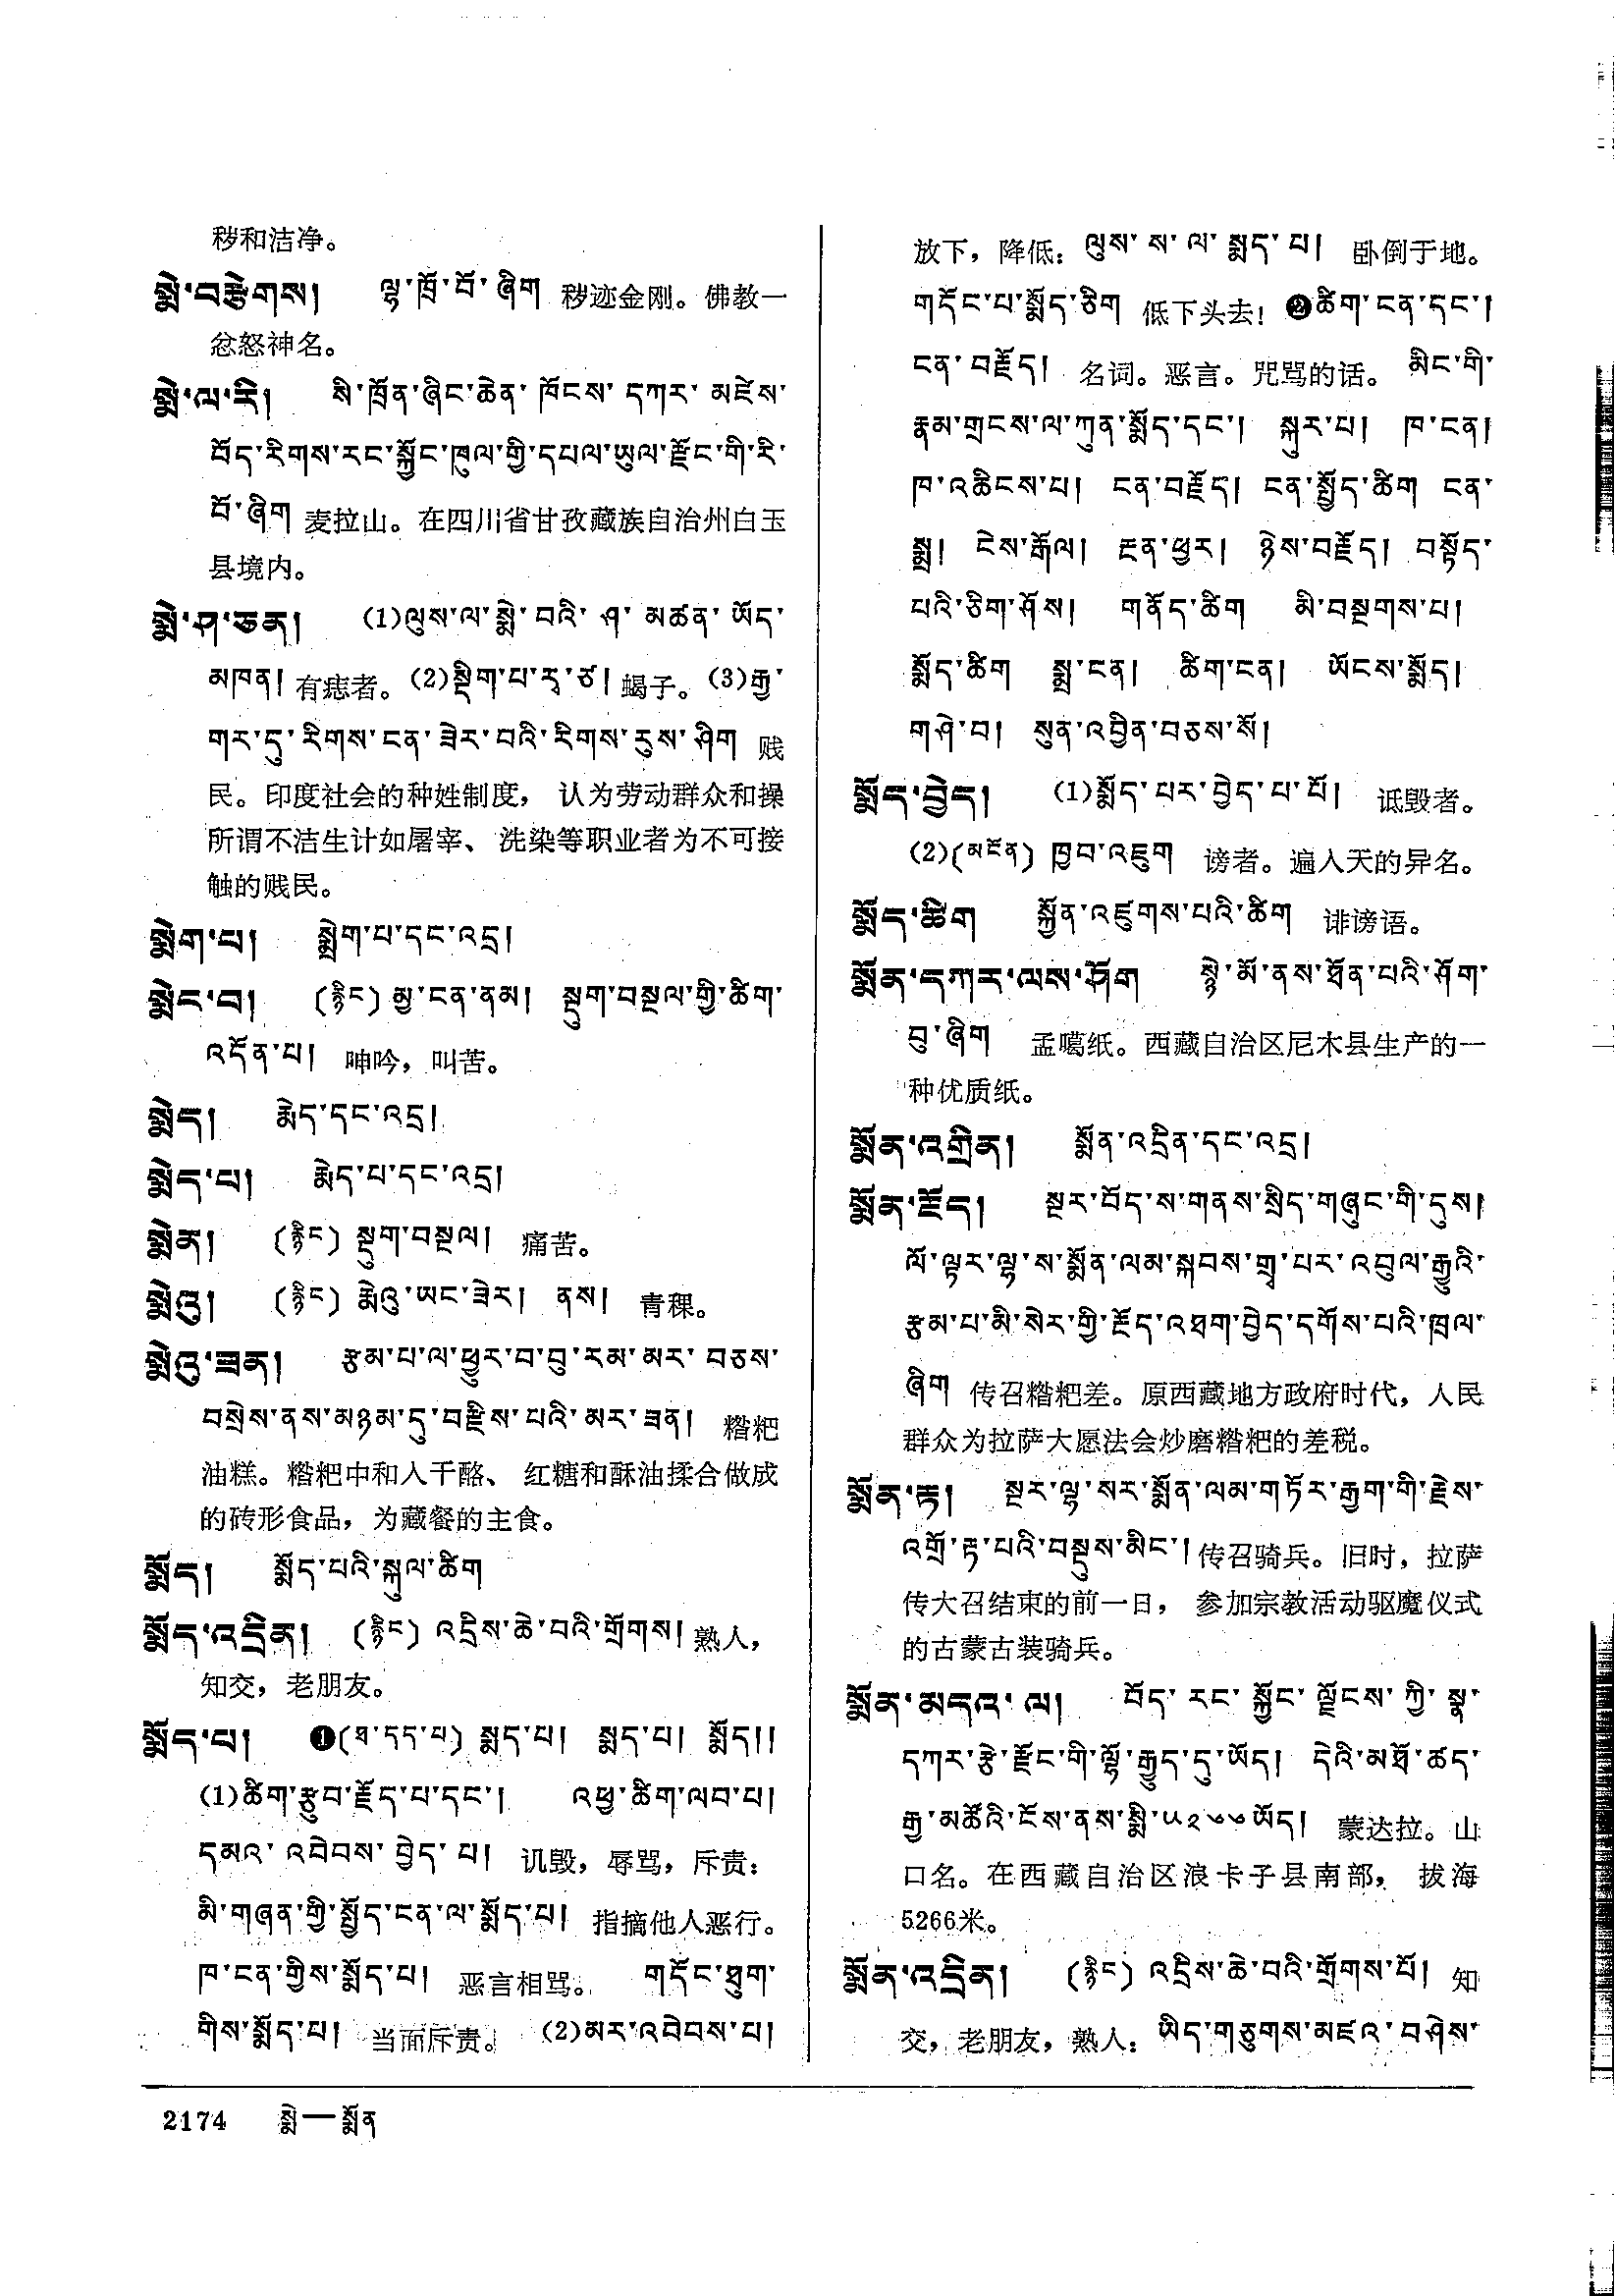 秽和洁净。
སྨེ་བརྩེགས། ལྷ་ཁྲོ་བོ་ཞིག 秽迹金刚。佛教一
忿怒神名。
སྨེ་ལ་རི། སི་ཁྲོན་ཞིང་ཆེན་ཁོངས་དཀར་མཛེས་
བོད་རིགས་རང་སྐྱོང་ཁུལ་གྱི་དཔལ་ཡུལ་རྫོང་གི་རི་
བོ་ཞིག 麦拉山。在四川省甘孜藏族自治州白玉
县境内。
སྨེ་ཤ་ཅན། (1)ལུས་ལ་སྨེ་བའི་ཤ་མཚན་ཡོད་
མཁན། 有痣者。(2)སྡིག་པ་རྭ་ཙ། 蝎子。(3)རྒྱ་
གར་དུ་རིགས་ངན་ཟེར་བའི་རིགས་རུས་ཤིག 贱
民。印度社会的种姓制度， 认为劳动群众和操
所谓不洁生计如屠宰、 洗染等职业者为不可接
触的贱民。
སྨེག་པ། སྨྲེག་པ་དང་འདྲ།
སྨེང་བ། (རྙིང) མྱ་ངན་ནམ། སྡུག་བསྔལ་གྱི་ཚིག་
འདོན་པ། 呻吟，叫苦。
སྨེད། རྨེད་དང་འདྲ།
སྨེད་པ། རྨེད་པ་དང་འདྲ།
སྨེན། (རྙིང) སྡུག་བསྔལ། 痛苦。
སྨེའུ། (རྙིང) རྨེའུ་ཡང་ཟེར། ནས། 青稞。
སྨེའུ་ཟན། རྩམ་པ་ལ་ཕྱུར་བ་བུ་རམ་མར་བཅས་
བསྲེས་ནས་མཉམ་དུ་བརྫིས་པའི་མར་ཟན། 糌粑
油糕。糌粑中和入干酪、 红糖和酥油揉合做成
的砖形食品，为藏餐的主食。
སྨོད། སྨོད་པའི་སྐུལ་ཚིག
སྨོད་འདྲིན། (རྙིང) འདྲིས་ཆེ་བའི་གྲོགས། 熟人，
知交，老朋友。
སྨོད་པ། ❶(ཐ་དད་པ) སྨད་པ། སྨད་པ། སྨོད།།
(1)ཚིག་རྩུབ་རྗོད་པ་དང་། འཕྱ་ཚིག་ལབ་པ།
དམའ་འབེབས་བྱེད་པ། 讥毁，辱骂，斥责：
མི་གཞན་གྱི་སྤྱོད་ངན་ལ་སྨོད་པ། 指摘他人恶行。
ཁ་ངན་གྱིས་སྨོད་པ། 恶言相骂。 གདོང་ཐུག་
གིས་སྨོད་པ། 当面斥责。 (2)མར་འབེབས་པ།
放下，降低：ལུས་ས་ལ་སྨད་པ། 卧倒于地。
གདོང་པ་སྨོད་ཅིག 低下头去！ ❷ཚིག་ངན་དང་།
ངན་བརྗོད། 名词。恶言。咒骂的话。 མིང་གི་
རྣམ་གྲངས་ལ་ཀུན་སྨོད་དང་། སྐུར་པ། ཁ་ངན།
ཁ་འཆིངས་པ། ངན་བརྗོད། ངན་སྤྱོད་ཚིག ངན་
སྨྲ། ངེས་རྒོལ། རྔན་ཕྱར། ཉེས་བརྗོད། བསྟོད་
པའི་ཅིག་ཤོས། གནོད་ཚིག མི་བསྔགས་པ།
སྨོད་ཚིག སྨྲ་ངན། ཚིག་ངན། ཡོངས་སྨོད།
གཤེ་བ། སུན་འབྱིན་བཅས་སོ།
སྨོད་བྱེད། (1)སྨོད་པར་བྱེད་པ་པོ། 诋毁者。
(2)(མངོན) ཁྱབ་འཇུག 谤者。遍入天的异名。
སྨོད་ཚིག སྐྱོན་འཛུགས་པའི་ཚིག 诽谤语。
སྨོན་དཀར་ལས་ཤོག སྙེ་མོ་ནས་ཐོན་པའི་ཤོག་
བུ་ཞིག 孟噶纸。西藏自治区尼木县生产的一
种优质纸。
སྨོན་འགྲིན། སྨོན་འདྲིན་དང་འདྲ།
སྨོན་རྔོད། སྔར་བོད་ས་གནས་སྲིད་གཞུང་གི་དུས།
ལོ་ལྟར་ལྷ་ས་སྨོན་ལམ་སྐབས་གྲྭ་པར་འབུལ་རྒྱུའི་
རྩམ་པ་མི་སེར་གྱི་རྔོད་འཐག་བྱེད་དགོས་པའི་ཁྲལ་
ཞིག 传召糌粑差。原西藏地方政府时代，人民
群众为拉萨大愿法会炒磨糌粑的差税。
སྨོན་རྟ། སྔར་ལྷ་སར་སྨོན་ལམ་གཏོར་རྒྱག་གི་རྗེས་
འགྲོ་རྟ་པའི་བསྡུས་མིང་། 传召骑兵。旧时，拉萨
传大召结束的前一日， 参加宗教活动驱魔仪式
的古蒙古装骑兵。
སྨོན་མདའ་ལ། བོད་རང་སྐྱོང་ལྗོངས་ཀྱི་སྣ་
དཀར་རྩེ་རྫོང་གི་ལྷོ་རྒྱུད་དུ་ཡོད། དེའི་མཐོ་ཚད་
རྒྱ་མཚོའི་ངོས་ནས་སྨི་༥༢༦༦ཡོད། 蒙达拉。山
口名。在西藏自治区浪卡子县南部， 拔海
5266米。
སྨོན་འདྲིན། (རྙིང) འདྲིས་ཆེ་བའི་གྲོགས་པོ། 知
交，老朋友，熟人：ཡིད་གཅུགས་མཛའ་བཤེས་
2174 སྨེ—སྨོན